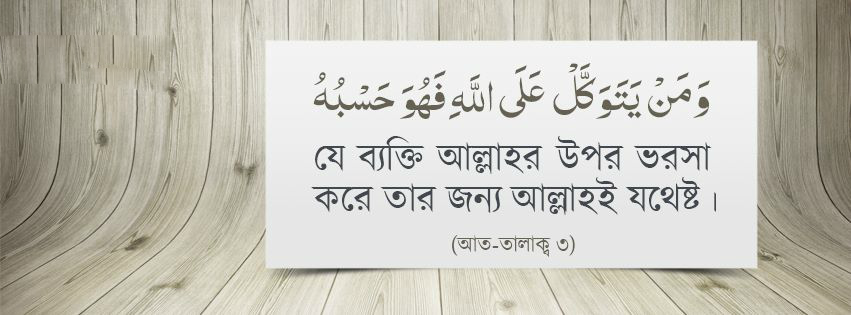 وَمَنْ يَتَوَكَّلْ عَلَى اللَّهِ فَهُوَ حَسْبُهُ
যে ব্যক্তি আল্লাহর উপর ভরসা
করে তার জন্য আল্লাহই যথেষ্ট।
(আত-তালাক্ব ৩)